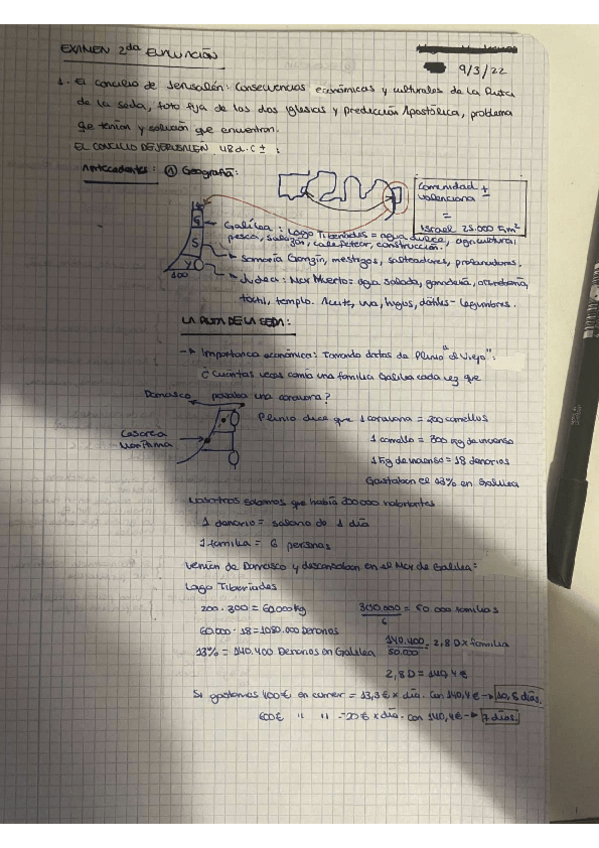 EXAMEN 2da EVALUACIÓN
9/3/22
1. El concilio de Jerusalén: Consecuencias económicas y culturales de la Ruta
de la seda, foto fija de las dos Iglesias y predicación Apostólica, problema
que tenían y solución que encuentran.
EL CONCILIO DE JERUSALÉN 48 d.C ± :
Antecedentes: A Geografía:
Comunidad ±
Valenciana
=
Israel 25.000 Km²
G
S
Y
400
Galilea: Lago Tiberiades = agua dulce, agricultura
pesca, salazón, calafetear, construcción.
Samaria Gorizín, mestizos, salteadores, profanadores.
Judea: Mar Muerto = agua salada, ganadería,
textil, templo. Aceite, uva, higos, dátiles - legumbres.
LA RUTA DE LA SEDA:
→ Importancia económica: Tomando datos de Plinio "el Viejo":
¿Cuántas veces comía una familia Galilea cada vez que
pasaba una caravana?
Damasco
Cesarea
Marítima
Plinio dice que 1 caravana = 200 camellos
1 camello = 300 Kg de incienso
1 Kg de incienso = 18 denarios
Gastaban el 13% en Galilea
Nosotros sabemos que había 300000 habitantes
1 denario = salario de 1 día
1 familia = 6 personas
Venían de Damasco y descansaban en el Mar de Galilea =
Lago Tiberiades
200 · 300 = 60.000 Kg
300.000 / 6 = 50.000 familias
60.000 · 18 = 1080.000 Denarios
140.400 / 50.000 = 2,8 D x familia
13% = 140.400 Denarios en Galilea
2,8 D = 140,4 €
Si gastamos 400 € en comer = 13,3 € x día. Con 140,4 € → 10,5 días.
600 € " " = 20 € x día. Con 140,4 € → 7 días.